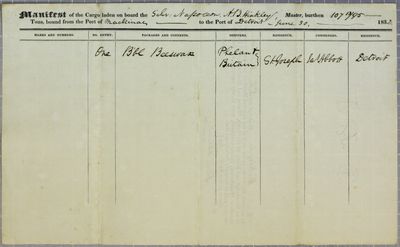 Manifest of the Cargo laden on board the Schr. Napoleon, A.B. Hinkley, Master, burthen 107 19/95
Tons, bound from the Port of Mackinac to the Port of Detroit June 30, 183
MARKS AND NUMBERS. NO. ENTRY. PACKAGES AND CONTENTS. SHIPPERS. RESIDENCE. CONSIGNEES. RESIDENCE.
One Bbl Beeswax Phelan & Butain St Joseph Ja Abbott Detroit